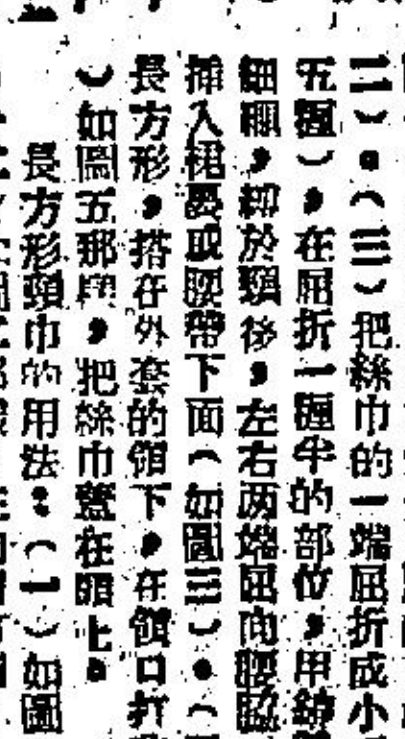 二)。(三)把絲巾的一端屈折成小
五糎),在屈折一糎半的部位,用
細,於頸後,左右两端屈向腰
插入裙要或腰帶下面(如圖三)。(
長方形,搭在外套的領下,在領口打
)如圖五那,把絲巾蓋在頭上。
長方形頸巾的用法:(一)如圖